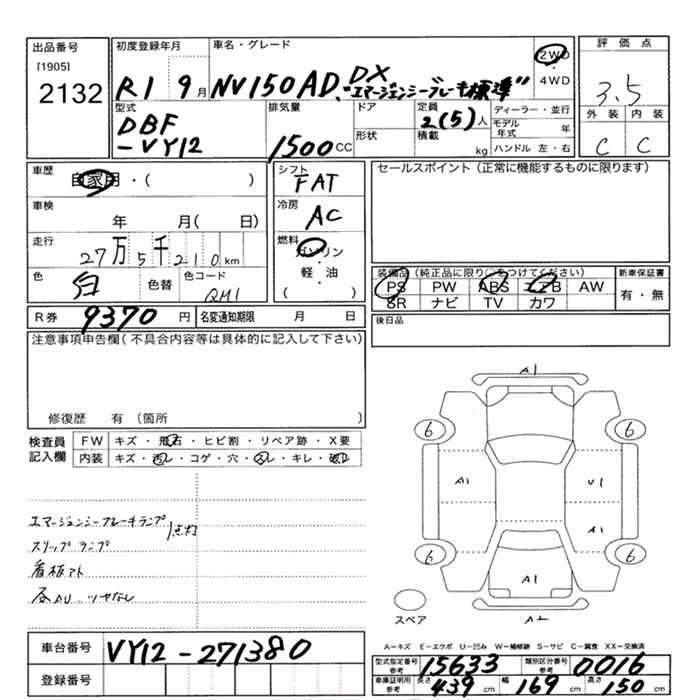 出品番号
[1905]
2132
初度登録年月
R1 9月
車名・グレード
NV150AD DX
"エマージェンシーブレーキ標準"
2WD
・
4WD
評価点
3.5
外装 内装
C C
型式
DBF
-VY12
排気量
1500CC
ドア
形状
定員
2(5)人
積載
kg
ディーラー・並行
モデル年式 年
ハンドル 左・右
車歴
自家用・( )
車検
年 月( 日)
走行
27万5千210km
色
白
色替
色コード
QM1
シフト
FAT
冷房
AC
燃料
ガソリン
・
軽油
( )
セールスポイント(正常に機能するものに限ります)
装備品(純正品に限り○をつけてください)
PS PW ABS エアB AW
SR ナビ TV カワ
新車保証書
有・無
R券 9370円
名変通知期限 月 日
後日品
注意事項申告欄(不具合内容等は具体的に記入して下さい)
修復歴 有(箇所 )
検査員
記入欄
FW キズ・飛石・ヒビ割・リペア跡・X要
内装 キズ・汚レ・コゲ・穴・スレ・キレ・破レ
エマージェンシーブレーキランプ
スリップランプ 点灯
看板アト
ツヤなし
A1
6 6
A1 U1
A1
6 6
A1
スペア
A=キズ E=エクボ U=凹み W=補修跡 S=サビ C=腐食 XX=交換済
車台番号 VY12-271380
登録番号
型式指定番号
参考
15633
類別区分番号
参考
0016
車庫証明用
参考
長さ 439cm
幅 169cm
高さ 150cm